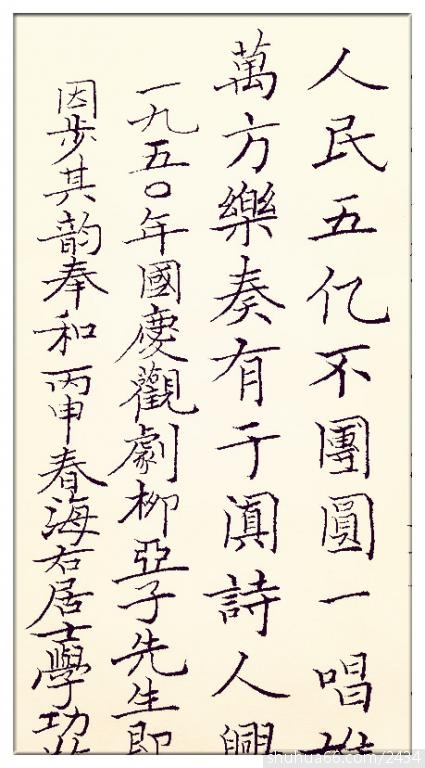 人民五亿不團圓一唱
萬方樂奏有于闐詩人興
一九五〇年國慶觀劇柳亞子先生即
因步其韵奉和丙申春海右居士學功
shuhua68.com/2434